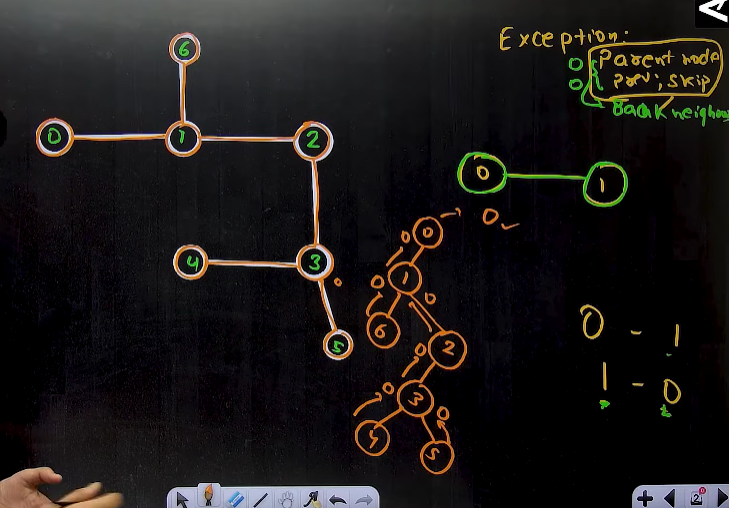 Exception:
0 Parent node
0 Prev; skip
Back neighbou
6
0 1 2
4 3
5
0 1
0 → 0
0 1
0 0
6 2
0
0 3 0
4 5
0 - 1
1 - 0
2